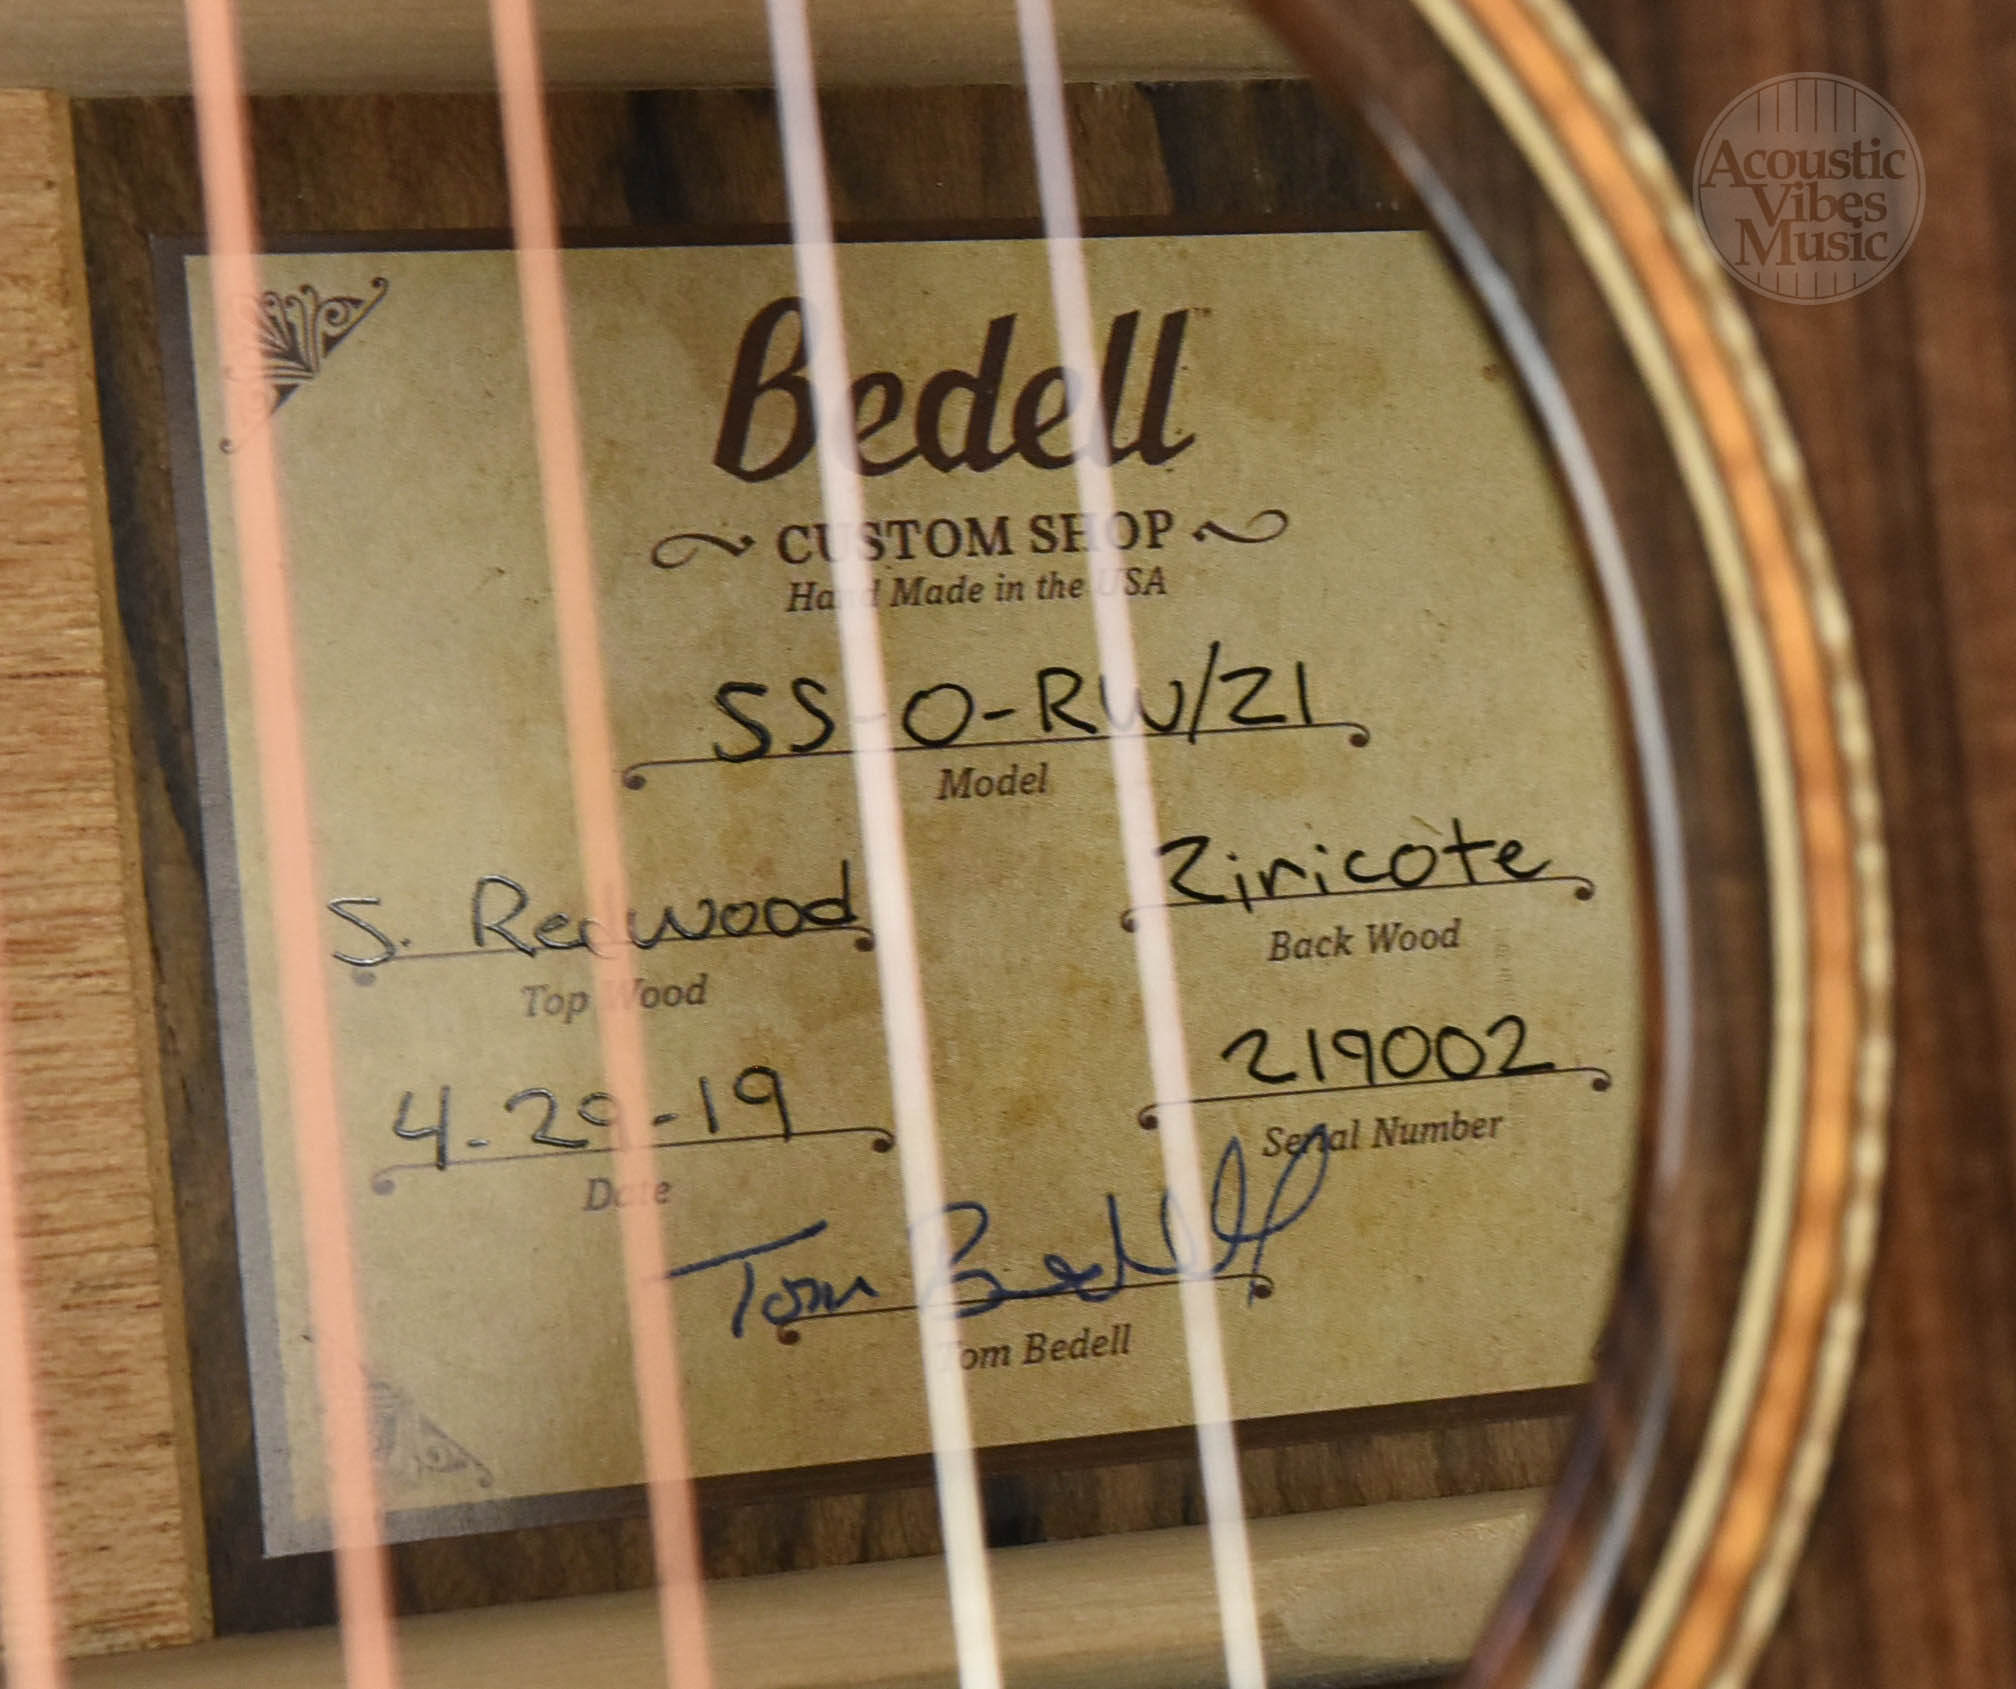 Acoustic
Vibes
Music
Bedell™
CUSTOM SHOP
Hand Made in the USA
SS-O-RW/ZI
Model
S. Redwood
Ziricote
Top Wood
Back Wood
4-29-19
219002
Date
Serial Number
Tom Bedell
Tom Bedell